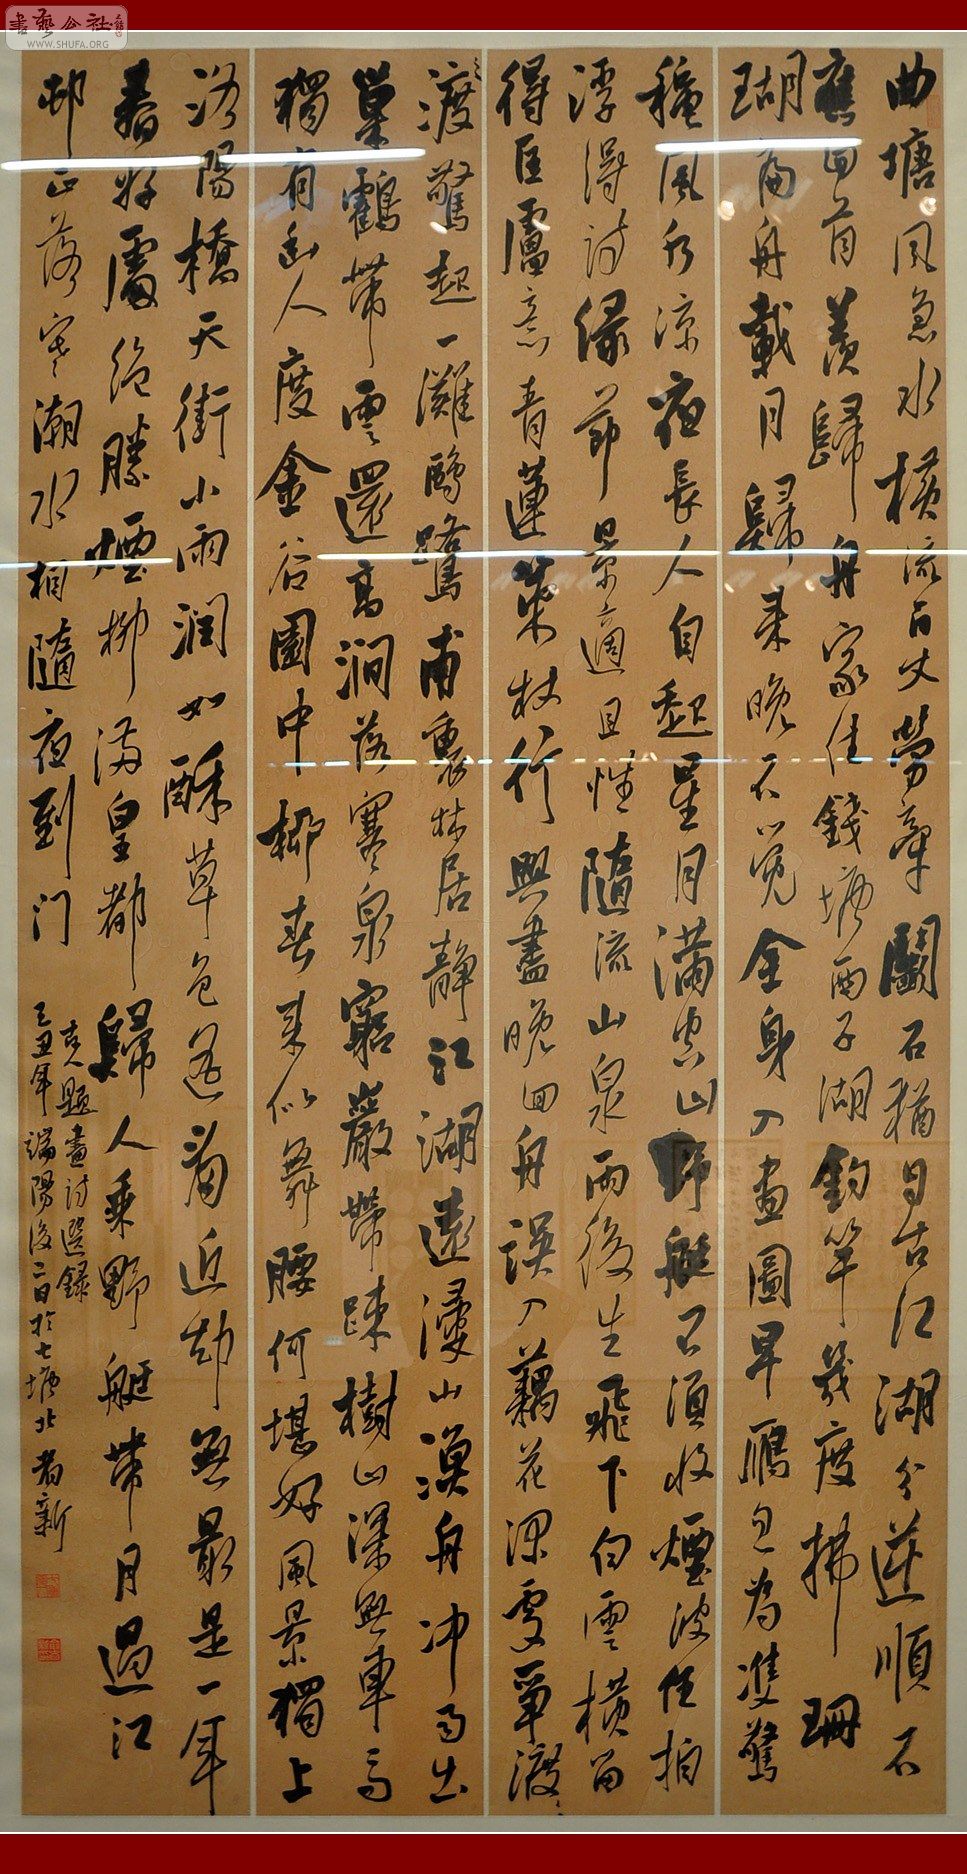 書藝公社
WWW.SHUFA.ORG
曲塘風急水橫流百丈勞牽鬭石猶自古江湖分逆順不
應回首羨歸舟家住錢塘西子湖釣竿幾度拂珊
瑚扁舟載月歸來晚不覺全身入畫圖早雁為雙驚
穩風涼夜長人自起星月滿空山野艇不須收煙波任拍
浮得詩緣節景適且性隨流山泉雨後生飛下白雲橫留
得匡廬意青蓮策杖行興盡晚回舟誤入藕花深處爭渡
渡驚起一灘鷗鷺甫裏林居靜江湖遠浸山漁舟冲雨出
巢鶴帶雲還高澗落寒泉窮巖帶疎樹山深無車馬
獨有幽人度金谷園中柳春來似舞腰何堪好風景獨上
洛陽橋天街小雨潤如酥草色遙看近却無最是一年
春好處絕勝煙柳滿皇都歸人乘野艇帶月過江
邨正落寒潮水相隨夜到门
古人題畫詩選錄
己丑年端陽後二日於七塘北者新